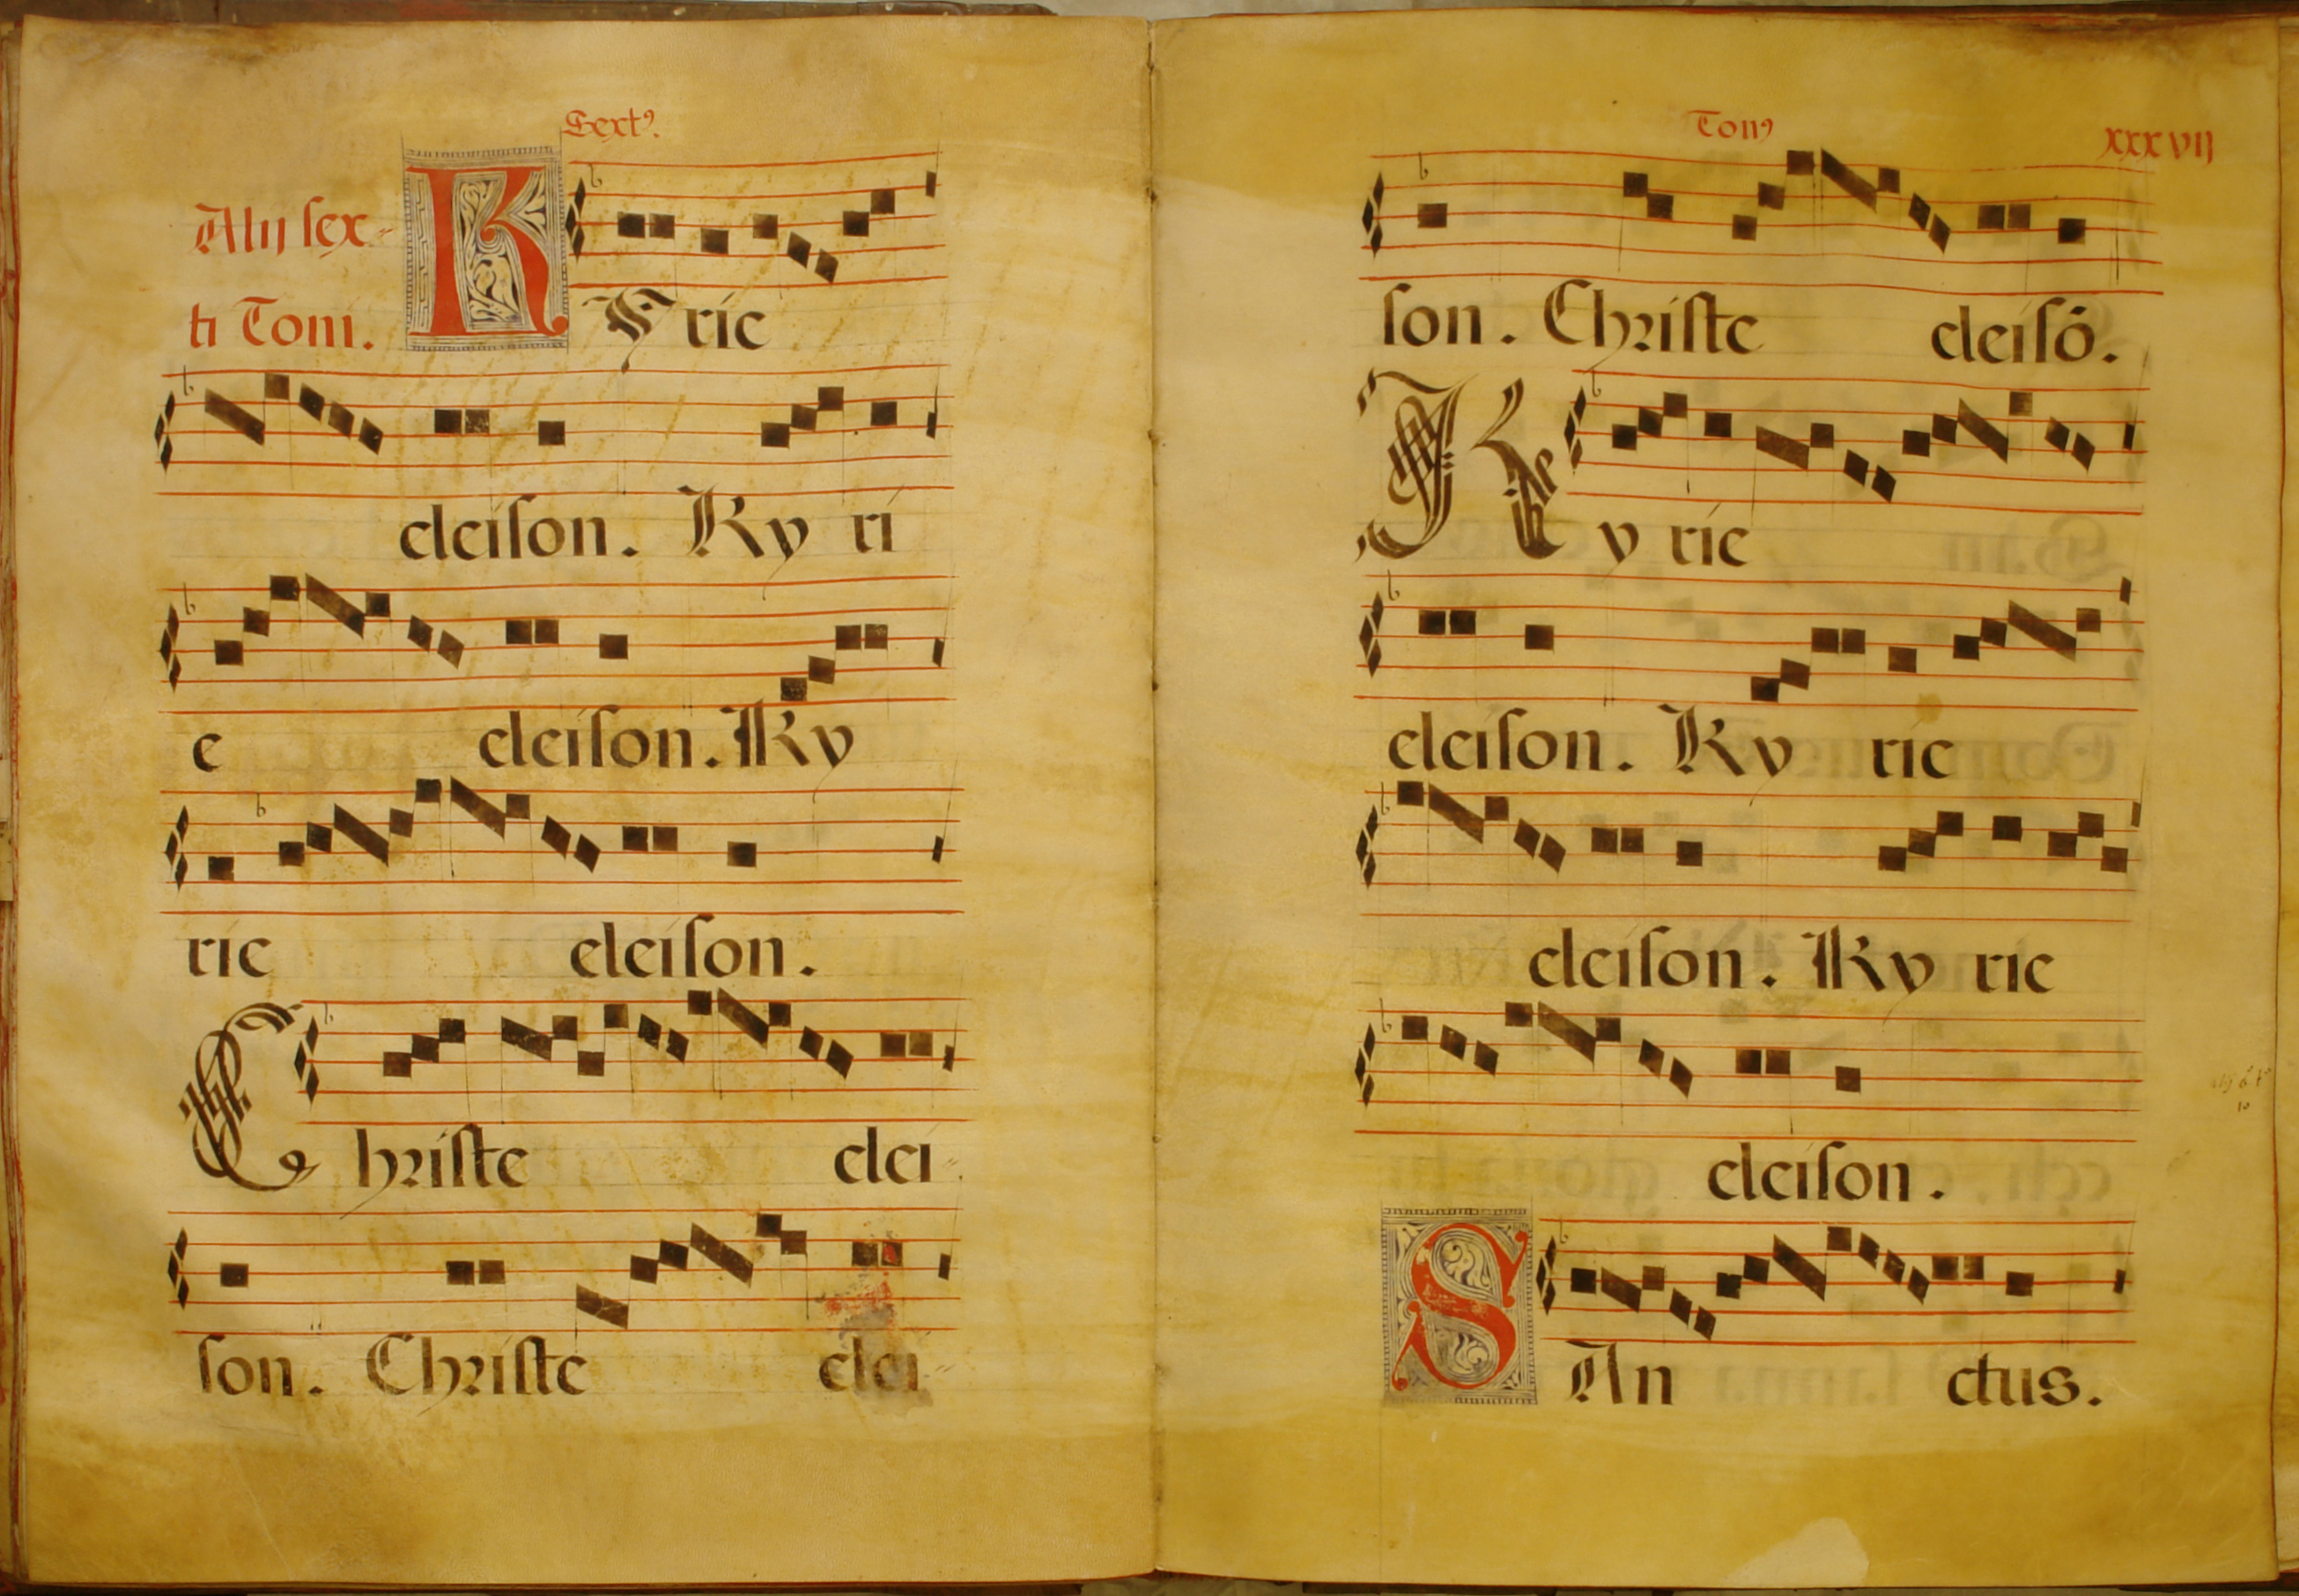 Sextꝰ.
Alij sex-
ti Toni.
KYrie
eleison. Ky ri
e eleison. Ky
rie eleison.
Christe elei-
son. Christe elei-
Tonꝰ xxxvij
son. Christe eleisō.
Kyrie
eleison. Ky rie
eleison. Ky rie
eleison.
SAn ctus.